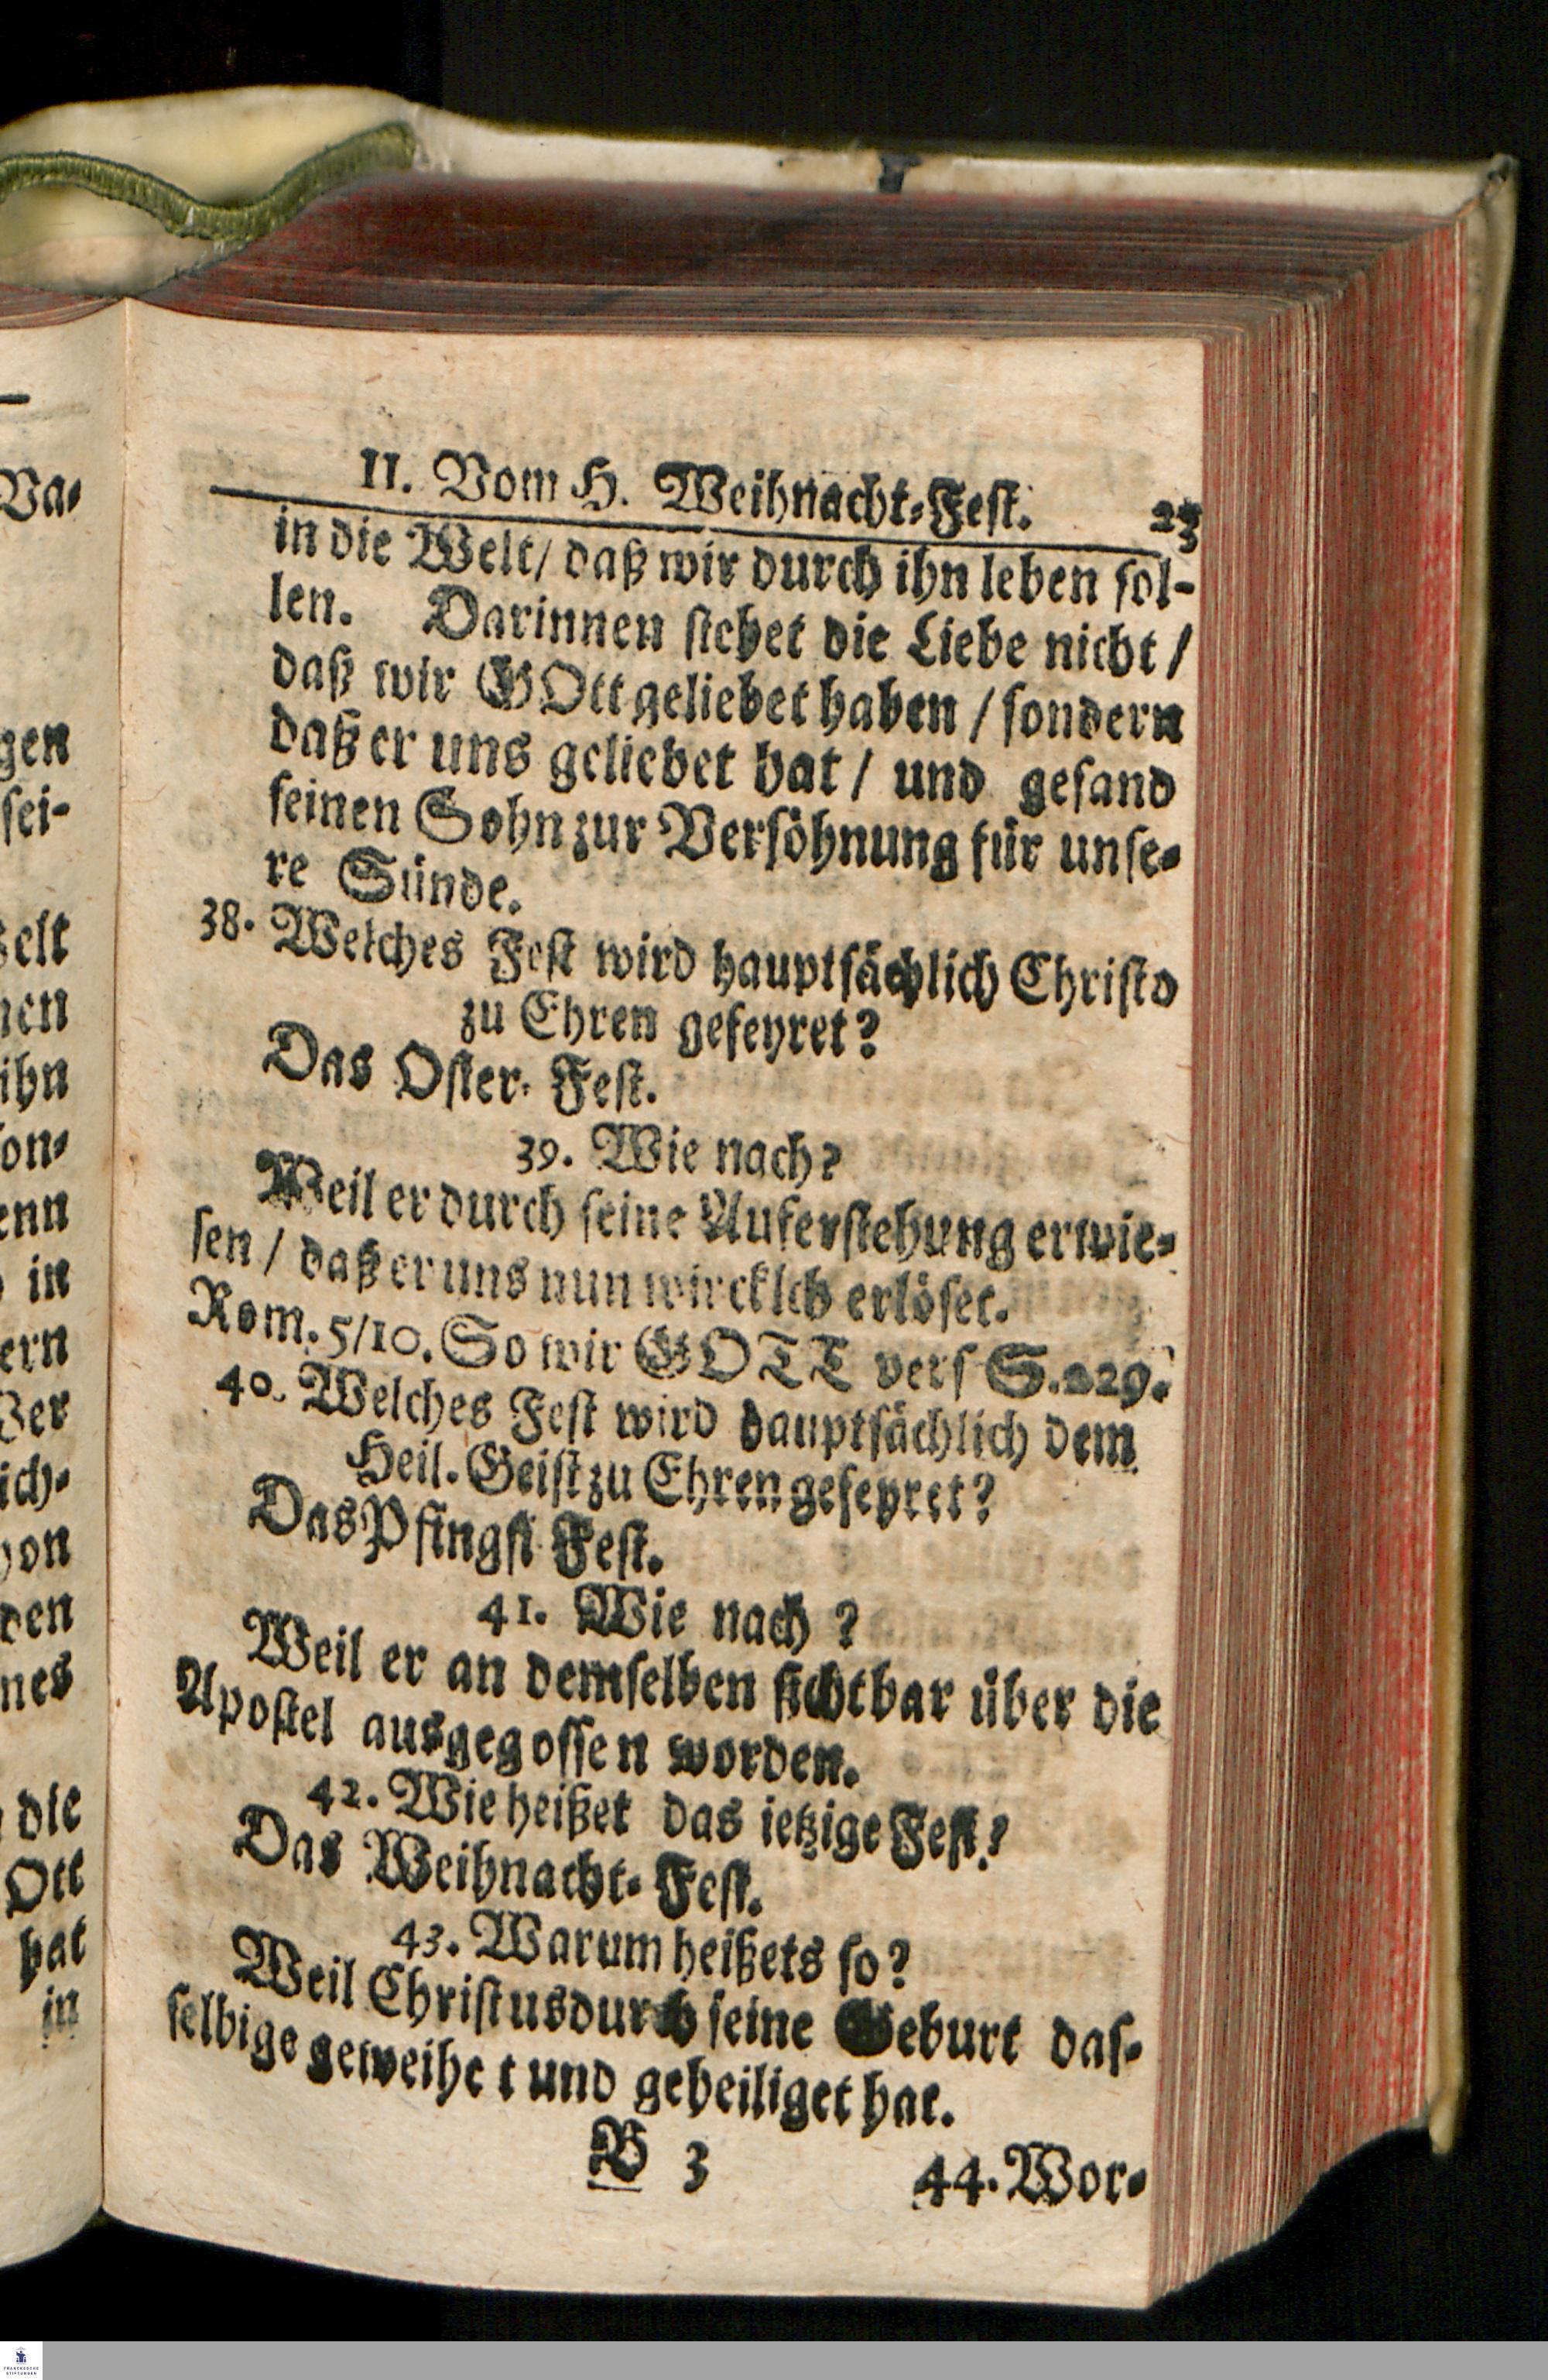 Va-
gen
sei-
elt
nen
ihn
on-
enn
in
ern
Ber
ich-
on
den
nes
die
Ott
hat
in
II. Vom H. Weihnacht-Fest. 23
in die Welt/ daß wir durch ihn leben sol-
len. Darinnen stehet die Liebe nicht /
daß wir GOtt geliebet haben / sondern
daß er uns geliebet hat / und gesand
seinen Sohn zur Versöhnung für unse-
re Sünde.
38. Welches Fest wird hauptsächlich Christo
zu Ehren gefeyret?
Das Oster-Fest.
39. Wie nach?
Weil er durch seine Auferstehung erwie-
sen / daß er uns nun wircklch erlöset.
Rom. 5/10. So wir GOTT vers S. 229.
40. Welches Fest wird hauptsächlich dem
Heil. Geist zu Ehren gefeyret?
Das Pfingst Fest.
41. Wie nach ?
Weil er an demselben sichtbar über die
Apostel ausgegossen worden.
42. Wie heißet das ietzige Fest?
Das Weihnacht-Fest.
43. Warum heißets so?
Weil Christus durch seine Geburt das-
selbige geweihet und geheiliget hat.
B 3 44. Wor-
FRANCKESCHE
STIFTUNGEN